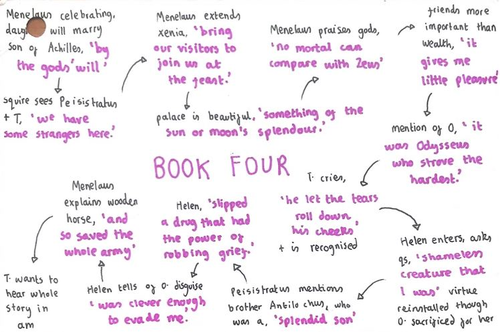 Menelaus celebrating,
will marry
son of Achilles, 'by
the gods' will'
squire sees Peisistratus
+ T, 'we have
some strangers here.'
Menelaus extends
xenia, 'bring
our visitors to
join us at
the feast.'
palace is beautiful, 'something of the
sun or moon's splendour.'
Menelaus praises gods,
'no mortal can
compare with Zeus'
friends more
important than
wealth, 'it
gives me
little pleasure'
mention of O, 'it
was Odysseus
who strove the
hardest.'
BOOK FOUR
T. cries,
'he let the tears
roll down
his cheeks'
+ is recognised
Helen enters, asks
qs, 'shameless
creature that
I was' virtue
reinstalled though
O. sacrificed for her
Peisistratus mentions
brother Antilochus, who
was a, 'splendid son'
Helen, 'slipped
a drug that had
the power of
robbing grief.'
Helen tells of O. disguise
'was clever enough
to evade me.'
Menelaus
explains wooden
horse, 'and
so saved the
whole army'
T. wants to
hear whole
story in
am